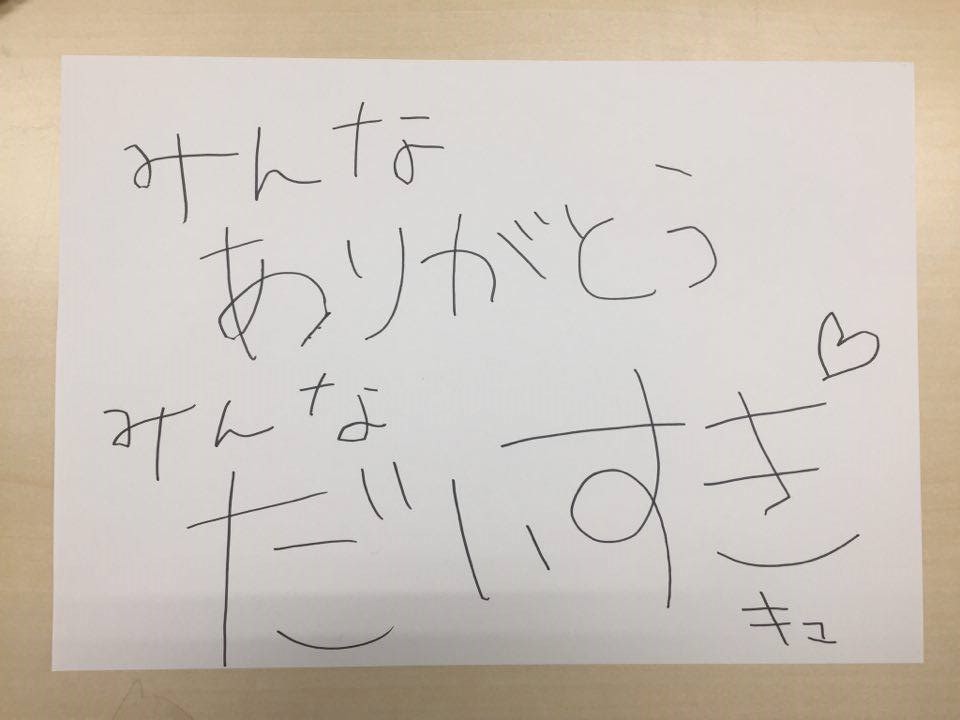 みんな
ありがとう
みんな
だいすき♡
キュ